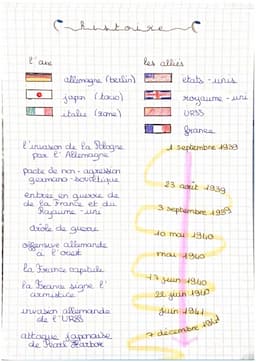 histoire
l'axe
les alliés
allemagne (berlin)
états - unis
japon (tokio)
royaume - uni
italie (rome)
URSS
france
l'invasion de la Pologne
par l'Allemagne
1 septembre 1939
pacte de non - agression
germano - soviétique
23 août 1939
entrée en guerre de
de la France et du
Royaume - uni
3 septembre 1939
drôle de guerre
offensive allemande
à l'ouest
10 mai 1940
mai 1940
la France capitule
17 juin 1940
la France signe l'
armistice
22 juin 1940
invasion allemande
de l'URSS
juin 1941
attaque japonaise
de Pearl Harbor
7 décembre 1941